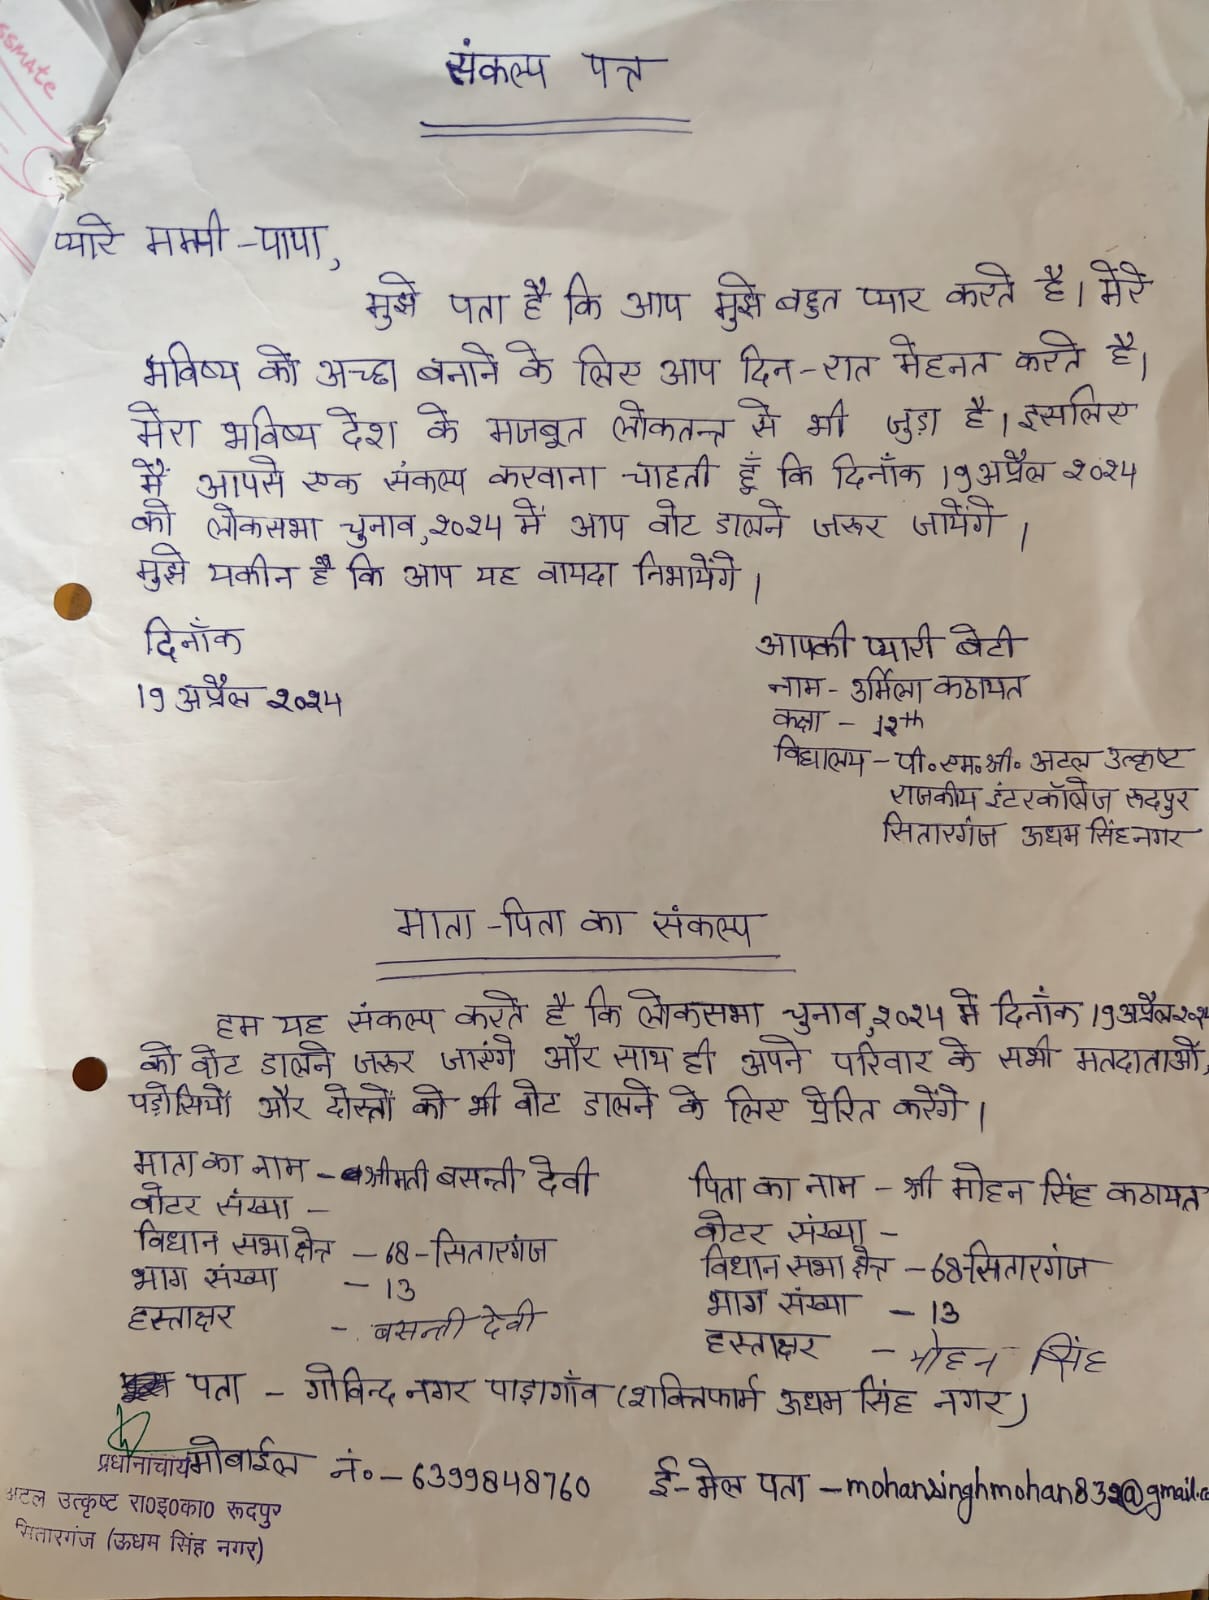 ssmate
संकल्प पत्र
प्यारे मम्मी-पापा,
मुझे पता है कि आप मुझे बहुत प्यार करते है। मेरे
भविष्य को अच्छा बनाने के लिए आप दिन-रात मेहनत करते है।
मेरा भविष्य देश के मजबूत लोकतन्त्र से भी जुड़ा है। इसलिए
मैं आपसे एक संकल्प करवाना चाहती हूँ कि दिनाँक 19 अप्रैल २०२४
को लोकसभा चुनाव,२०२४ में आप वोट डालने जरूर जायेंगे।
मुझे यकीन है कि आप यह वायदा निभायेंगे।
दिनाँक
19 अप्रैल २०२४
आपकी प्यारी बेटी
नाम - उर्मिला कठायत
कक्षा - 12th
विद्यालय - पी०एम०श्री० अटल उत्कृष्ट
राजकीय इंटरकॉलेज रूदपुर
सितारगंज ऊधम सिंह नगर
माता-पिता का संकल्प
हम यह संकल्प करते है कि लोकसभा चुनाव,२०२४ में दिनाँक 19 अप्रैल २०२४
को वोट डालने जरूर जाएंगे और साथ ही अपने परिवार के सभी मतदाताओं,
पड़ोसियों और दोस्तों को भी वोट डालने के लिए प्रेरित करेंगे।
माता का नाम - श्रीमती बसन्ती देवी
वोटर संख्या -
विधान सभा क्षेत्र - 68-सितारगंज
भाग संख्या - 13
हस्ताक्षर - बसन्ती देवी
पिता का नाम - श्री मोहन सिंह कठायत
वोटर संख्या -
विधान सभा क्षेत्र - 68-सितारगंज
भाग संख्या - 13
हस्ताक्षर - मोहन सिंह
पता - गोविन्द नगर पाड़ागाँव (शक्तिफार्म ऊधम सिंह नगर)
मोबाईल नं० - 6399848760 ई-मेल पता - mohansinghmohan832@gmail.co
प्रधानाचार्य
अटल उत्कृष्ट रा०इ०का० रूदपुर
सितारगंज (ऊधम सिंह नगर)